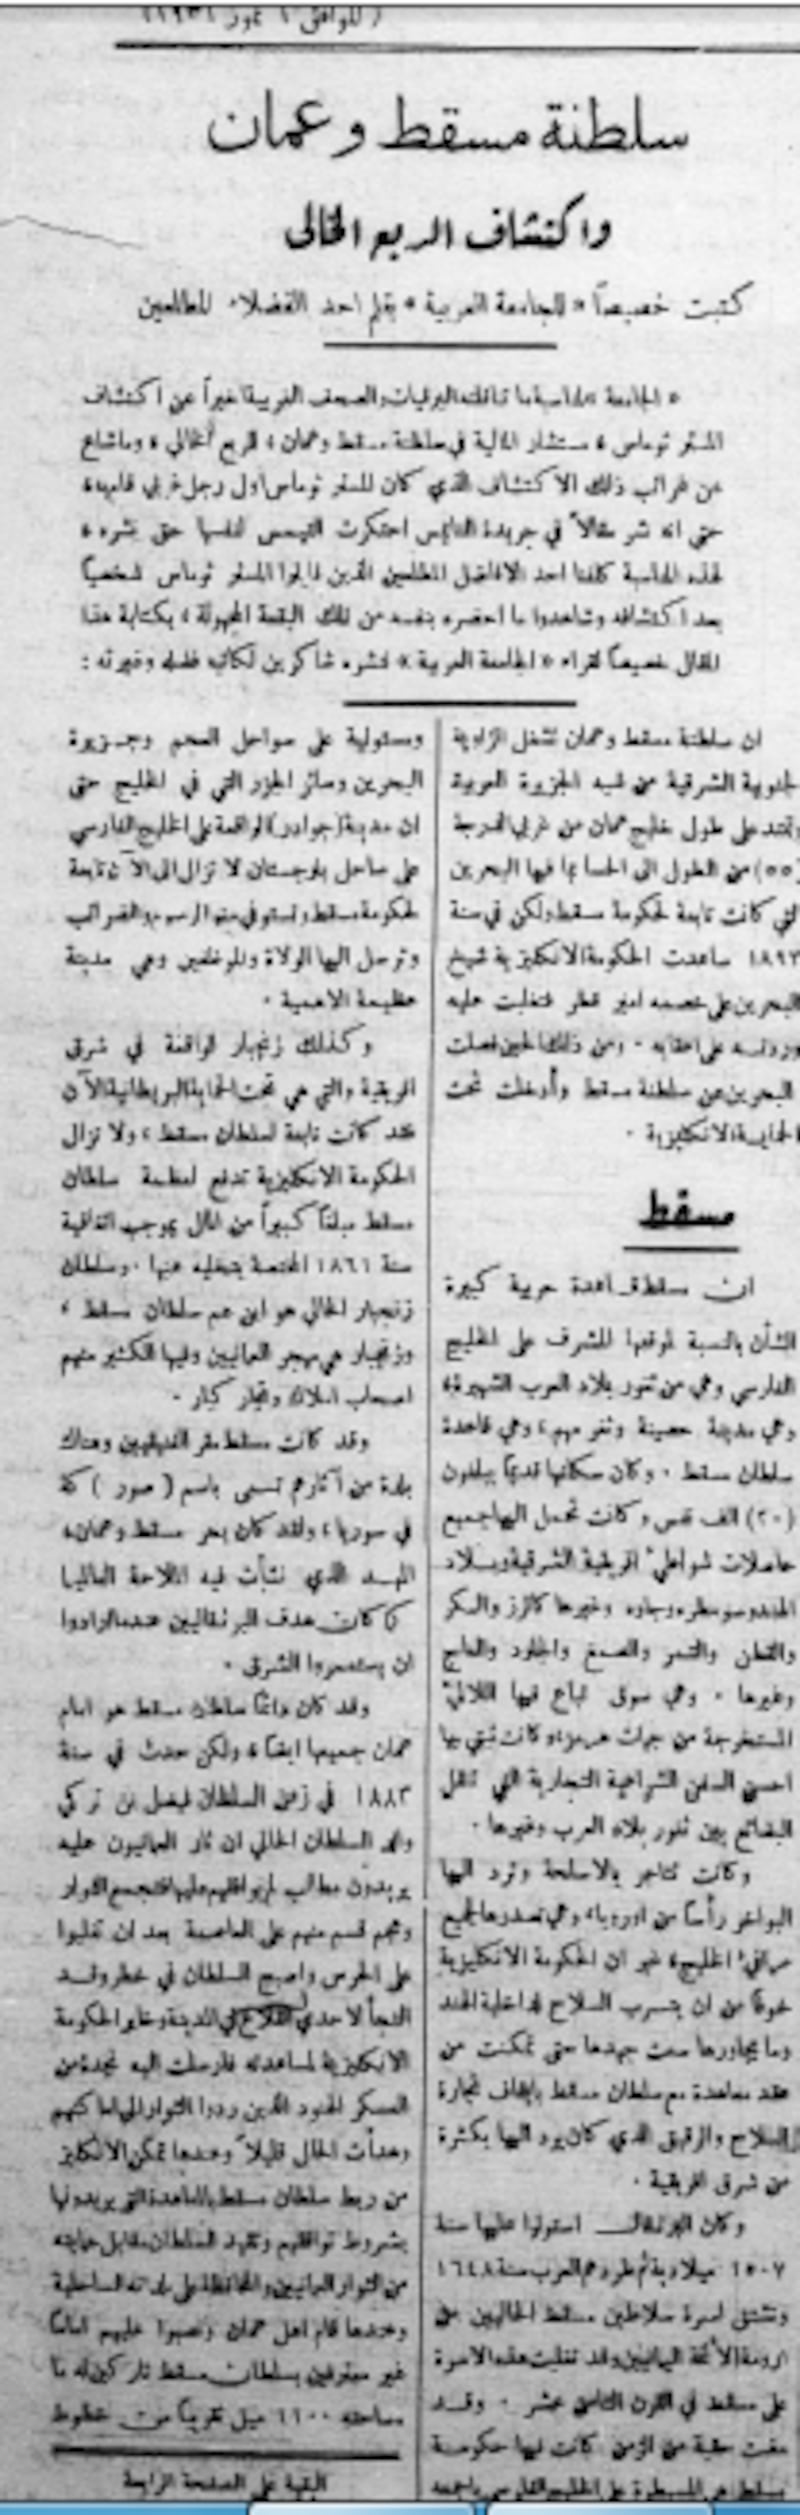 سلطنة مسقط وعمان
واكتشاف الربع الخالي
كتبت خصيصاً « للجامعة العربية » بقلم احد الفضلاء المطلعين
« الجامعة » لمناسبة ما تناقلته البرقيات والصحف الغربية اخيراً عن اكتشاف
المستر توماس « مستشار المالية في سلطنة مسقط وعمان » للربع الخالي ، وما شاع
عن غرائب ذلك الاكتشاف الذي كان المستر توماس اول رجل غربي قام به ،
حتى انه نشر مقالاً في جريدة التايمس احتكرت التيمس لنفسها حق نشره ،
لهذه المناسبة كلفنا احد الافاضل المطلعين الذين قابلوا المستر توماس شخصياً
بعد اكتشافه وشاهدوا ما احضره بنفسه من تلك البقعة المجهولة ، بكتابة هذا
المقال خصيصاً لقراء « الجامعة العربية » ننشره شاكرين لكاتبه فضله وغيرته :
ان سلطنة مسقط وعمان تشغل الزاوية
الجنوبية الشرقية من شبه الجزيرة العربية
وتمتد على طول خليج عمان من غربي الدرجة
(٥٥) من الطول الى الحسا بما فيها البحرين
التي كانت تابعة لحكومة مسقط ولكن في سنة
١٨٩٣ ساعدت الحكومة الانكليزية شيخ
البحرين على خصمه امير قطر فتغلبت عليه
على اعقابه . ومن ذلك الحين فصلت
البحرين عن سلطنة مسقط وأدخلت تحت
الحماية الانكليزية .
مسقط
ان مسقط قاعدة حربية كبيرة
الشأن بالنسبة لموقعها المشرف على الخليج
الفارسي وهي من ثغور بلاد العرب الشهيرة ،
وهي مدينة حصينة وثغر مهم ، وهي قاعدة
سلطان مسقط . وكان سكانها قديماً يبلغون
الف نفس وكانت تحمل اليها جميع
حاصلات شواطئ افريقية الشرقية وبلاد
الهند وسومطره وجاوه وغيرها كالرز والسكر
والقطن والتمر والصمغ والجلود والعاج
وغيرها . وهي سوق تباع فيها اللآلئ
المستخرجة من جهات هرمز ، وكانت تبنى بها
احسن السفن الشراعية التجارية التي تنقل
البضائع بين ثغور بلاد العرب وغيرها .
وكانت تتاجر بالاسلحة وترد اليها
البواخر رأساً من اوروبا ، وهي تصدرها لجميع
مرافئ الخليج ، غير ان الحكومة الانكليزية
خوفاً من ان يتسرب السلاح لداخلية الهند
وما يجاورها سعت جهدها حتى تمكنت من
عقد معاهدة مع سلطان مسقط بايقاف تجارة
السلاح والرقيق الذي كان يرد اليها بكثرة
من شرق افريقية .
وكان البرتغال استولوا عليها سنة
١٥٠٧ ميلادية ثم طردهم العرب سنة ١٦٤٨
وتشتق اسرة سلاطين مسقط الحاليين من
ارومة الأئمة اليمانيين وقد تغلبت هذه الاسرة
على مسقط في القرن الثامن عشر . وقد
مضت حقبة من الزمن كانت فيها حكومة
مسقط هي المسيطرة على الخليج الفارسي باجمعه
ومسئولية على سواحل العجم وجزيرة
البحرين وسائر الجزر التي في الخليج حتى
ان مدينة (جوادر) الواقعة على الخليج الفارسي
على ساحل بلوجستان لا تزال الى الآن تابعة
لحكومة مسقط وتستوفي منها الرسوم والضرائب
وترحل اليها الولاة والموظفين وهي مدينة
عظيمة الاهمية .
وكذلك زنجبار الواقعة في شرق
افريقية والتي هي تحت الحماية البريطانية الآن
فقد كانت تابعة لسلطان مسقط ، ولا تزال
الحكومة الانكليزية تدفع لعظمة سلطان
مسقط مبلغاً كبيراً من المال بموجب اتفاقية
سنة ١٨٦١ المختصة بتخليه عنها . وسلطان
زنجبار الحالي هو ابن عم سلطان مسقط ،
وزنجبار هي مهجر العمانيين وفيها الكثير منهم
اصحاب املاك وتجار كبار .
وقد كانت مسقط مقر الفينيقيين وهناك
بلدة من آثارهم تسمى باسم ( صور )
في سوريا ، ولقد كان بحر مسقط وعمان ،
المهد الذي نشأت فيه الملاحة
كما كان هدف البرتغاليين عندما ارادوا
ان يستعمروا الشرق .
وقد كان دائماً سلطان مسقط هو امام
عمان جميعها ايضاً ، ولكن حدث في سنة
١٨٨٣ في زمن السلطان فيصل بن تركي
والد السلطان الحالي ان ثار العمانيون عليه
يريدون مطالب لم يوافقهم عليها فتجمع الثوار
وهجم قسم منهم على العاصمة بعد ان تغلبوا
على الحرس واصبح السلطان في خطر وقد
التجأ لاحدى القلاع في المدينة وخابر الحكومة
الانكليزية لمساعدته فارسلت اليه نجدة من
العسكر الهنود الذين ردوا الثوار الى اماكنهم
وهدأت الحال قليلاً وعندها تمكن الانكليز
من ربط سلطان مسقط بالمعاهدة التي يريدونها
بشروط توافقهم وتقيد السلطان مقابل حمايته
من الثوار العمانيين والمحافظة على بلدته الساحلية
وعندها قام اهل عمان ونصبوا عليهم اماماً
غير معترفين بسلطان مسقط تاركين له ما
مساحته ١١٠٠ ميل تقريباً من خطوط
البقية على الصفحة الرابعة